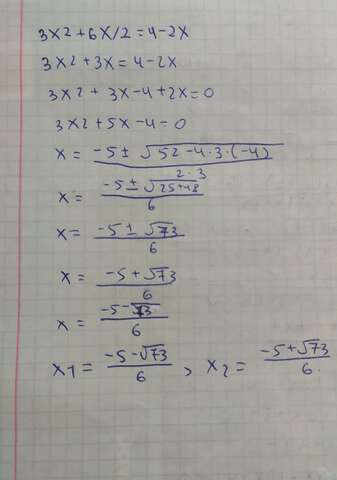 3x² + 6x/2 = 4 - 2x
3x² + 3x = 4 - 2x
3x² + 3x - 4 + 2x = 0
3x² + 5x - 4 = 0
x = (-5 ± √(5² - 4·3·(-4))) / (2·3)
x = (-5 ± √(25+48)) / 6
x = (-5 ± √73) / 6
x = (-5 + √73) / 6
x = (-5 - √73) / 6
x1 = (-5 - √73) / 6 , x2 = (-5 + √73) / 6.